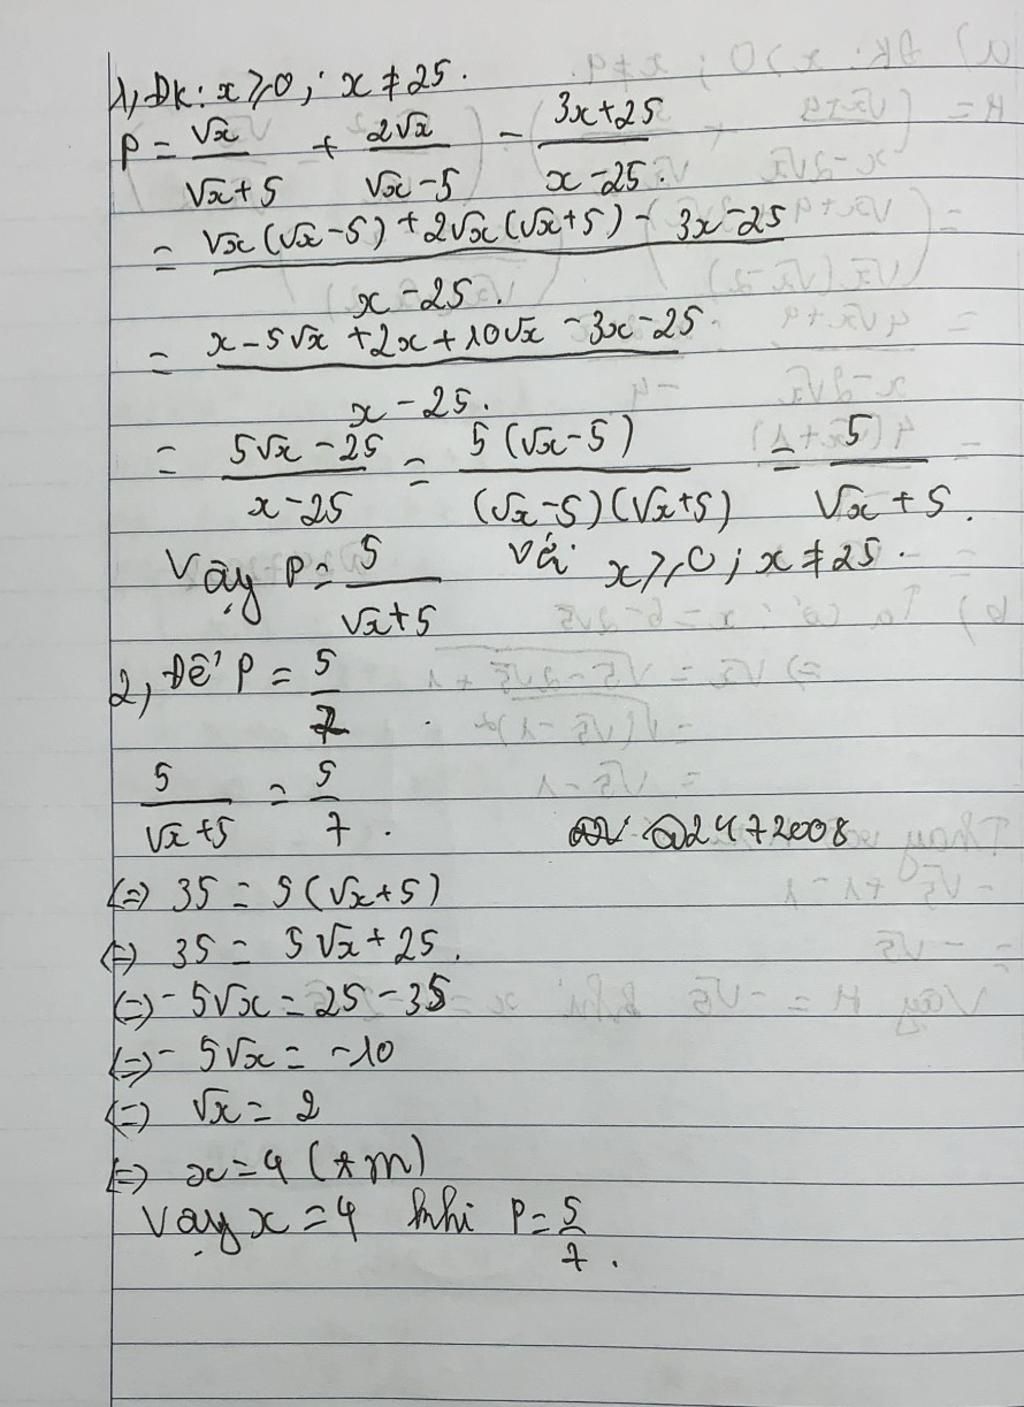 1, ĐK: x ≥ 0 ; x ≠ 25.
P = √x/(√x + 5) + 2√x/(√x - 5) - (3x + 25)/(x - 25).
= (√x(√x - 5) + 2√x(√x + 5) - 3x - 25)/(x - 25).
= (x - 5√x + 2x + 10√x - 3x - 25)/(x - 25).
= (5√x - 25)/(x - 25) = 5(√x - 5)/((√x - 5)(√x + 5)) = 5/(√x + 5).
Vậy P = 5/(√x + 5) với x ≥ 0 ; x ≠ 25.
2, Để P = 5/7.
5/(√x + 5) = 5/7.
2472008
<=> 35 = 5(√x + 5)
<=> 35 = 5√x + 25.
<=> -5√x = 25 - 35
<=> -5√x = -10
<=> √x = 2
<=> x = 4 (tm)
Vậy x = 4 khi P = 5/7.